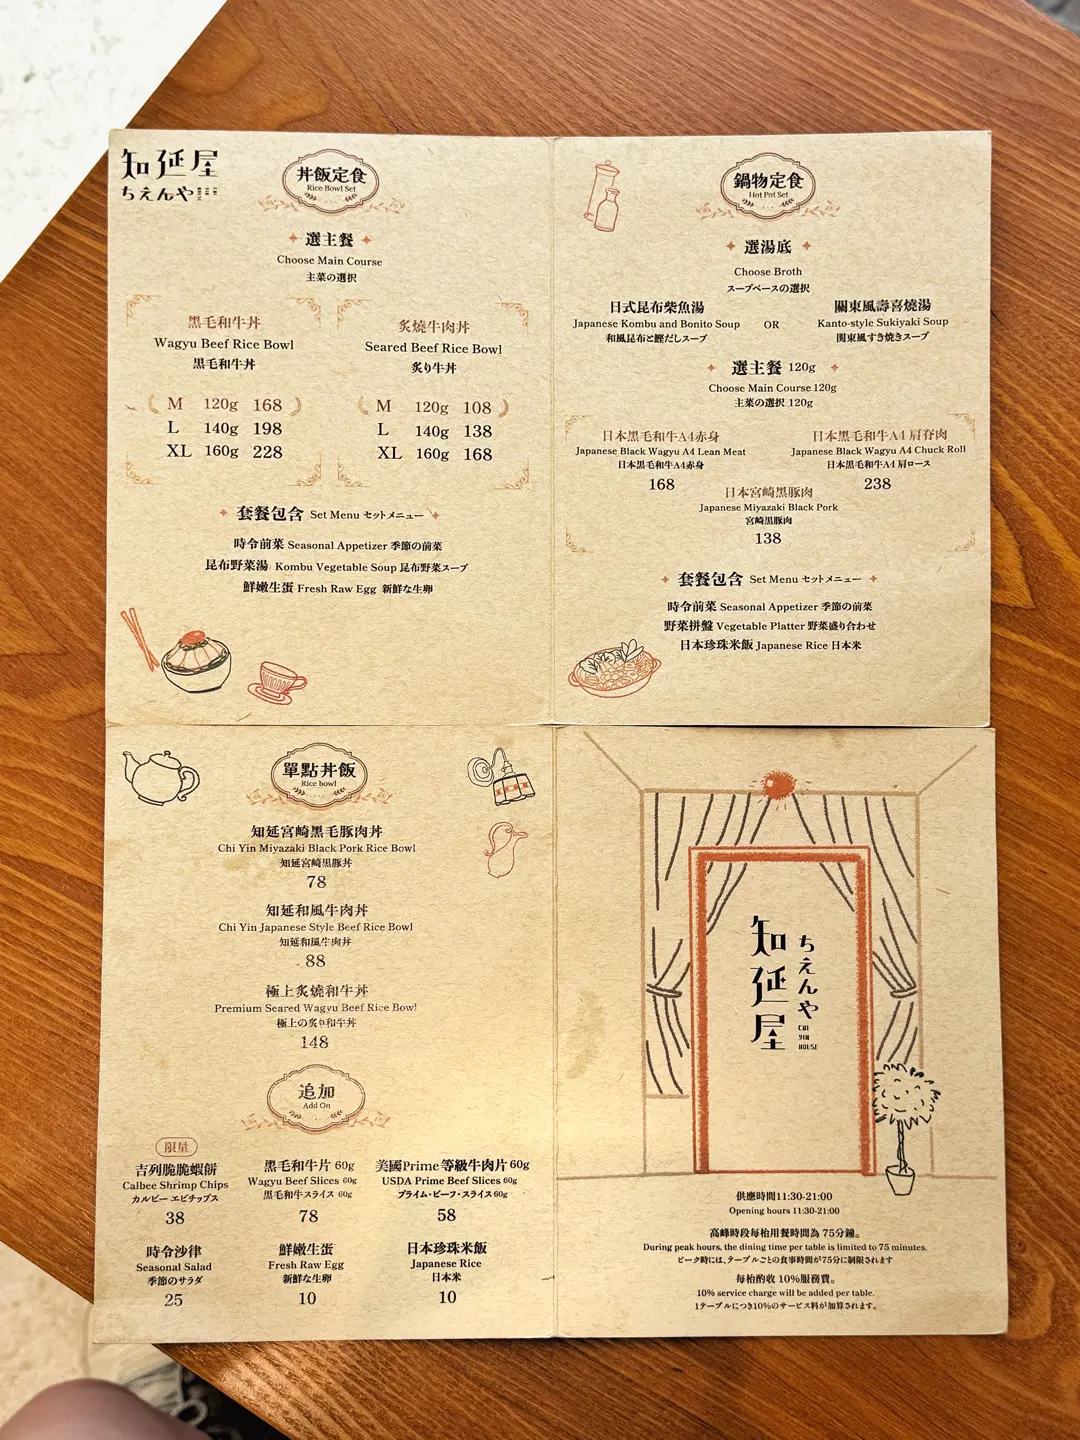 知延屋
ちえんや
丼飯定食
Rice Bowl Set
選主餐
Choose Main Course
主菜の選択
黑毛和牛丼
Wagyu Beef Rice Bowl
黒毛和牛丼
M 120g 168
L 140g 198
XL 160g 228
炙燒牛肉丼
Seared Beef Rice Bowl
炙り牛丼
M 120g 108
L 140g 138
XL 160g 168
套餐包含 Set Menu セットメニュー
時令前菜 Seasonal Appetizer 季節の前菜
昆布野菜湯 Kombu Vegetable Soup 昆布野菜スープ
鮮嫩生蛋 Fresh Raw Egg 新鮮な生卵
鍋物定食
Hot Pot Set
選湯底
Choose Broth
スープベースの選択
日式昆布柴魚湯
Japanese Kombu and Bonito Soup
和風昆布と鰹だしスープ
OR
關東風壽喜燒湯
Kanto-style Sukiyaki Soup
関東風すき焼きスープ
選主餐 120g
Choose Main Course 120g
主菜の選択 120g
日本黑毛和牛A4赤身
Japanese Black Wagyu A4 Lean Meat
日本黒毛和牛A4赤身
168
日本黑毛和牛A4 肩脊肉
Japanese Black Wagyu A4 Chuck Roll
日本黒毛和牛A4 肩ロース
238
日本宮崎黑豚肉
Japanese Miyazaki Black Pork
宮崎黒豚肉
138
套餐包含 Set Menu セットメニュー
時令前菜 Seasonal Appetizer 季節の前菜
野菜拼盤 Vegetable Platter 野菜盛り合わせ
日本珍珠米飯 Japanese Rice 日本米
單點丼飯
Rice bowl
知延宮崎黑毛豚肉丼
Chi Yin Miyazaki Black Pork Rice Bowl
知延宮崎黒豚丼
78
知延和風牛肉丼
Chi Yin Japanese Style Beef Rice Bowl
知延和風牛肉丼
88
極上炙燒和牛丼
Premium Seared Wagyu Beef Rice Bowl
極上の炙り和牛丼
148
追加
Add On
限量
吉列脆脆蝦餅
Calbee Shrimp Chips
カルビー エビチップス
38
黑毛和牛片 60g
Wagyu Beef Slices 60g
黒毛和牛スライス 60g
78
美國Prime等級牛肉片 60g
USDA Prime Beef Slices 60g
プライム・ビーフ・スライス 60g
58
時令沙律
Seasonal Salad
季節のサラダ
25
鮮嫩生蛋
Fresh Raw Egg
新鮮な生卵
10
日本珍珠米飯
Japanese Rice
日本米
10
知延屋
ちえんや
CHI
YIN
HOUSE
供應時間11:30-21:00
Opening hours 11:30-21:00
高峰時段每枱用餐時間為 75分鐘。
During peak hours, the dining time per table is limited to 75 minutes.
ピーク時には、テーブルごとの食事時間が75分に制限されます
每枱酌收 10%服務費。
10% service charge will be added per table.
1テーブルにつき10%のサービス料が加算されます。